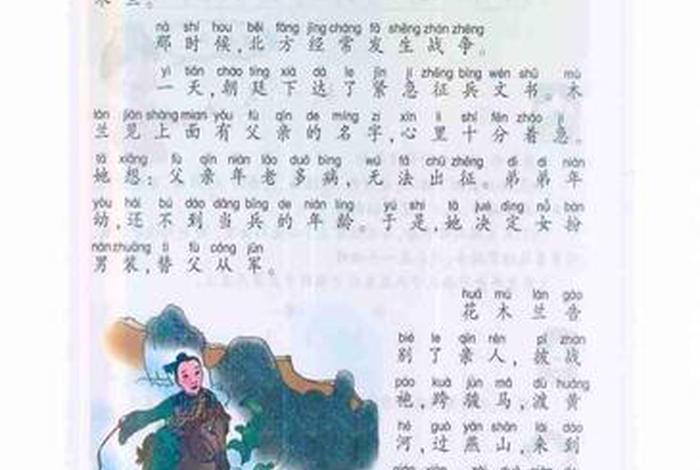 木兰。
nà shí hou běi fāng jīng cháng fā shēng zhàn zhēng
那时候,北方经常发生战争。
yì tiān cháo tíng xià dá le jǐn jí zhēng bīng wén shū mù
一天,朝廷下达了紧急征兵文书。木
lán jiàn shàng mian yǒu fù qīn de míng zi xīn li shí fēn zháo jí
兰见上面有父亲的名字,心里十分着急。
tā xiǎng fù qīn nián lǎo duō bìng wú fǎ chū zhēng dì di nián
她想:父亲年老多病,无法出征。弟弟年
yòu hái bú dào dāng bīng de nián líng yú shì tā jué dìng nǚ bàn
幼,还不到当兵的年龄。于是,她决定女扮
nán zhuāng tì fù cóng jūn
男装,替父从军。
huā mù lán gào
花木兰告
bié le qīn rén pī zhàn
别了亲人,披战
páo kuà jùn mǎ dù huáng
袍,跨骏马,渡黄
hé guò yān shān lái dào
河,过燕山,来到